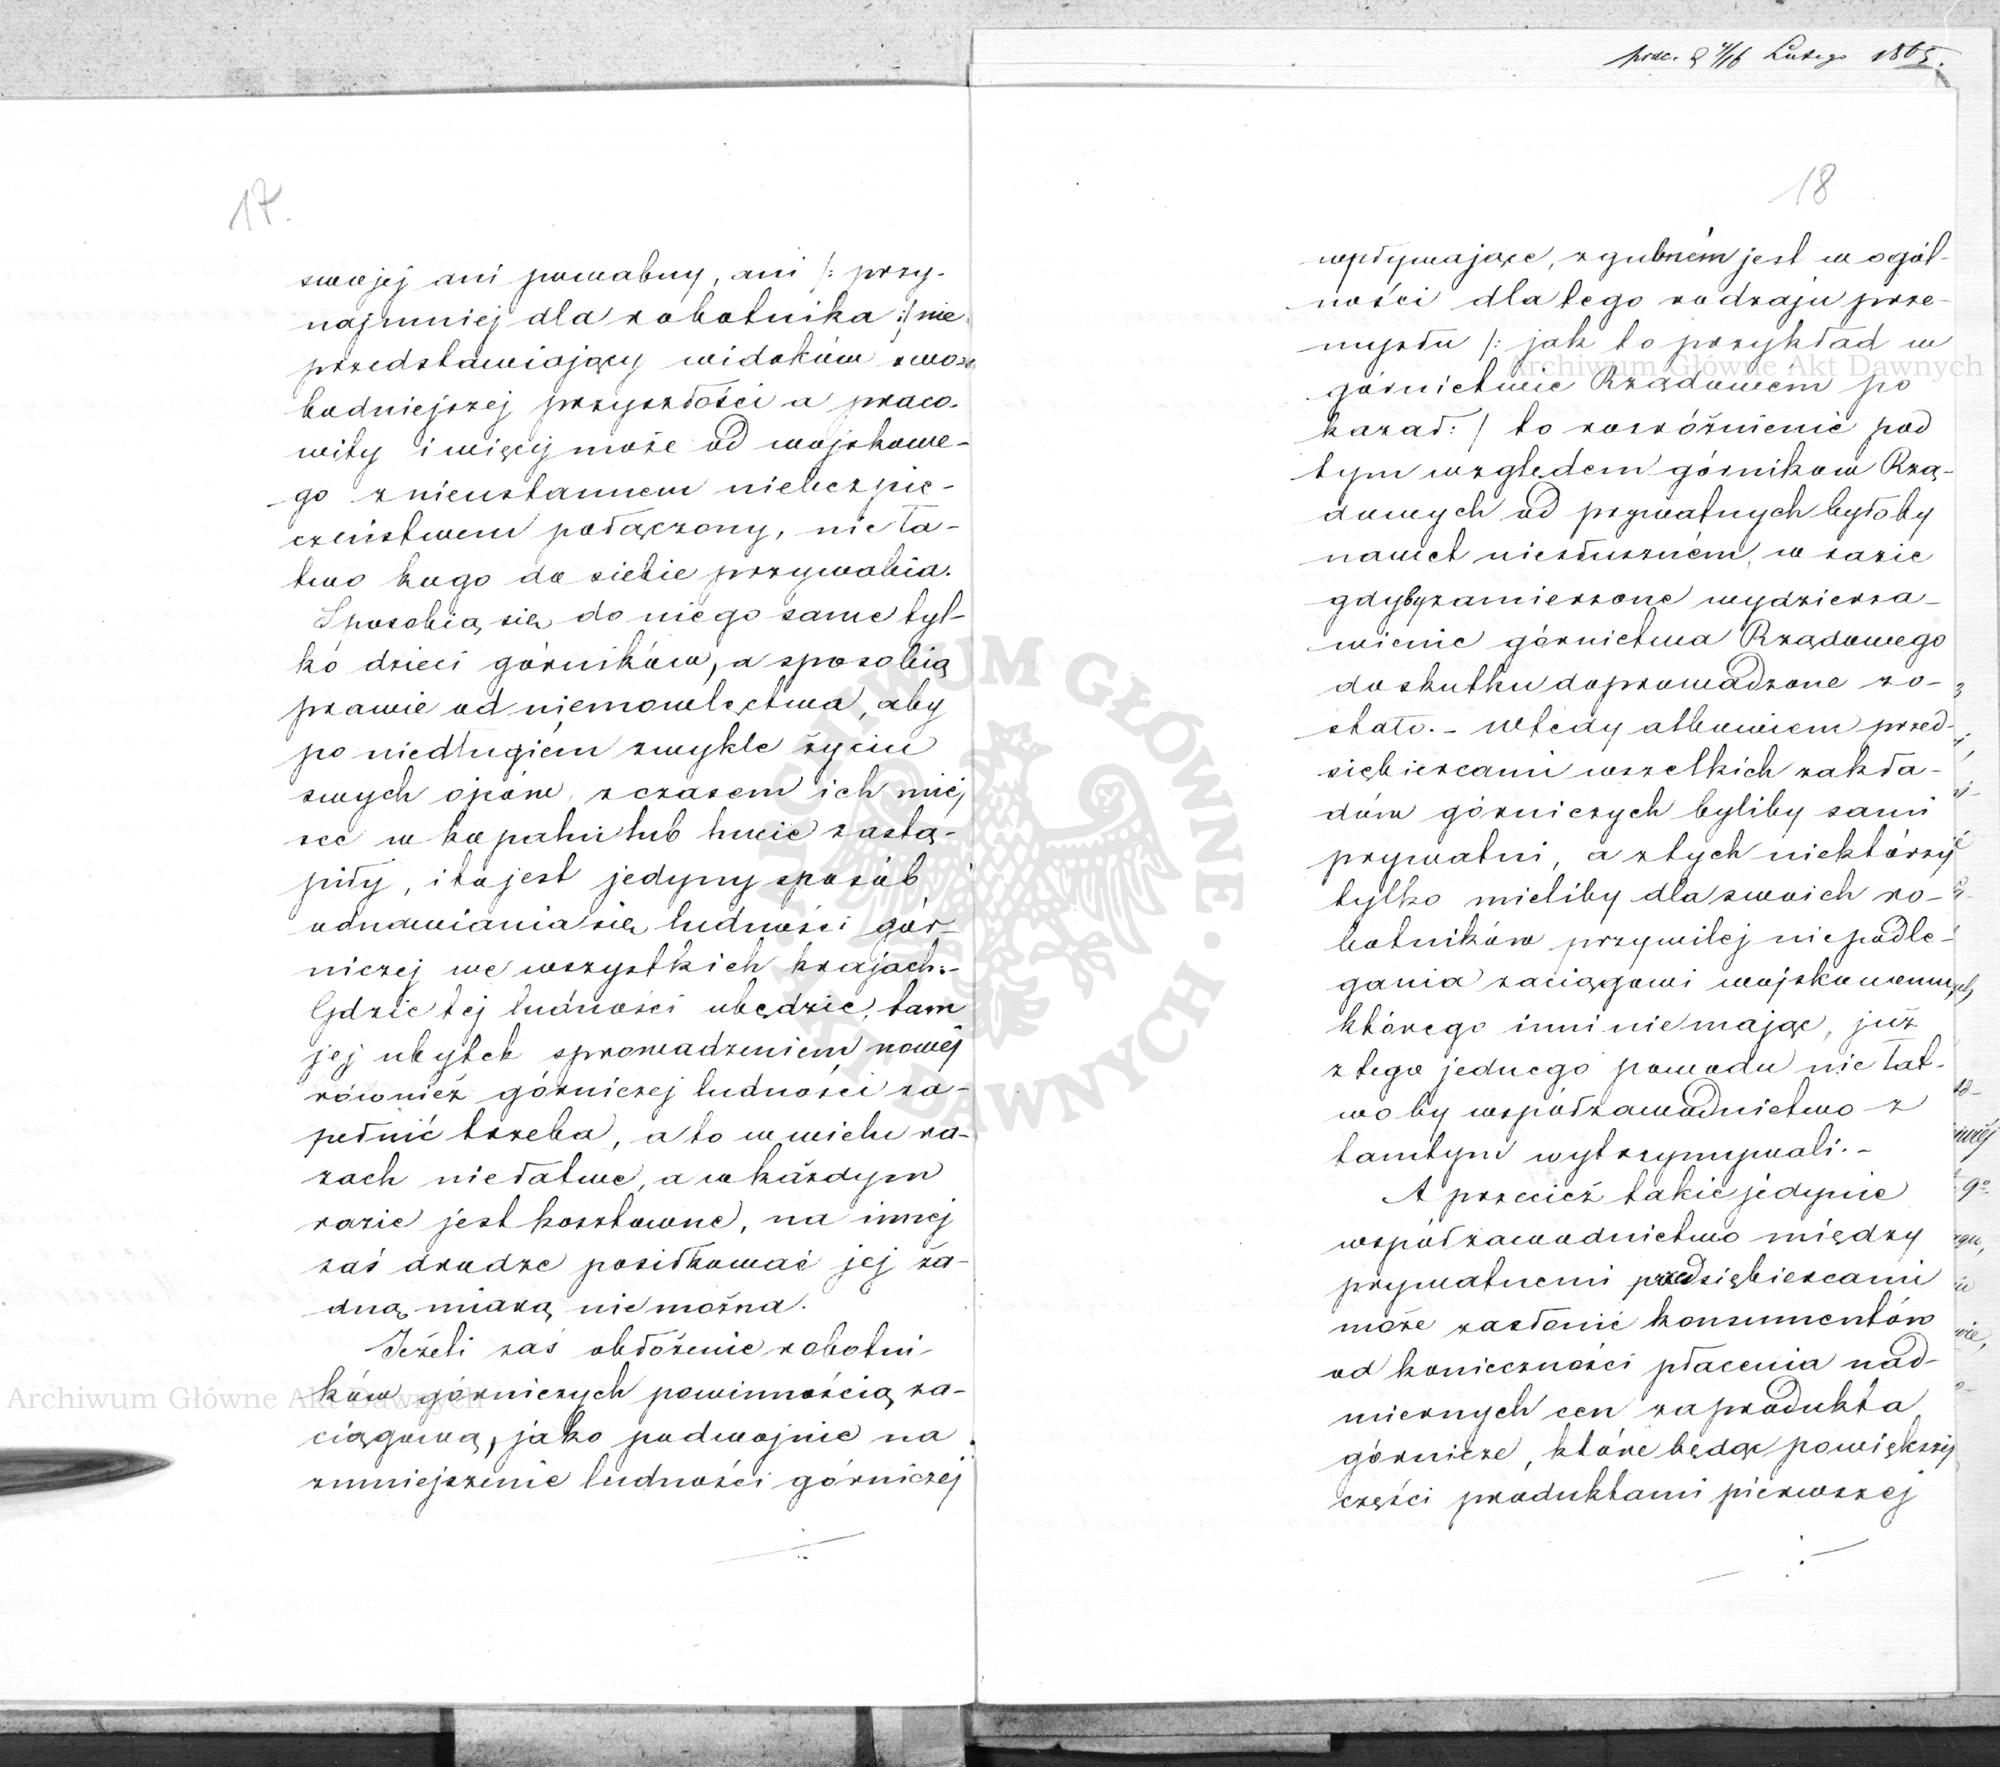 17.
swojej ani powabny, ani /: przy-
najmniej dla robotnika :/ nie
przedstawiający widoków swo-
bodniejszej przyszłości a praco-
wity i więcej może od wojskowe-
go z nieustannem niebezpie-
czeństwem połączony, nie ła-
two kogo do siebie przywabia.
Sposobią się do niego same tyl-
ko dzieci górników, a sposobią
prawie od niemowlęctwa, aby
po niedługiém zwykle życiu
swych ojców, z czasem ich miej
sce w kopalni lub hucie zastą-
piły, i to jest jedyny sposób
odnawiania się ludności gór-
niczej we wszystkich krajach.-
Gdzie tej ludności ubędzie, tam
jej ubytek sprowadzeniem nowej
również górniczej ludności za-
pełnić trzeba, a to w wielu ra-
zach niełatwe, a w każdym
razie jest kosztowne, na innej
zaś drodze posiłkować jej ża-
dną miarą nie można.
Jeżeli zaś obłożenie robotni-
ków górniczych powinnością za-
ciągową, jako podwojnie na
zmniejszenie ludności górniczej
Archiwum Główne Akt Dawnych
prze. d 4/16 Lutego 1865.
18
wpływające, zgubném jest w ogól-
ności dla tego rodzaju prze-
mysłu /: jak to przykład w
górnictwie Rządowém po
kazał :/ to rozróżnienie pod
tym względem górnikow Rzą-
dowych od prywatnych byłoby
nawet niesłuszném, w razie
gdyby zamierzone wydzierża-
wienie górnictwa Rządowego
do skutku doprowadzone zo-
stało. - Wtedy albowiem przed-
siębiercami wszelkich zakła-
dów górniczych byliby sami
prywatni, a z tych niektórzy
tylko mieliby dla swoich ro-
botników przywilej niepodle-
gania zaciągowi wojskowemu,
którego inni nie mając, już
z tego jednego powodu nie łat-
wo by współzawodnictwo z
tamtym wytrzymywali. -
A przecież takie jedynie
współzawodnictwo między
prywatnemi przedsiębiercami
może zasłonić konsumentów
od konieczności płacenia nad-
miernych cen za produkta
górnicze, które będąc powiększej
części produktami pierwszej
Archiwum Główne Akt Dawnych
ARCHIWUM GŁÓWNE AKT DAWNYCH